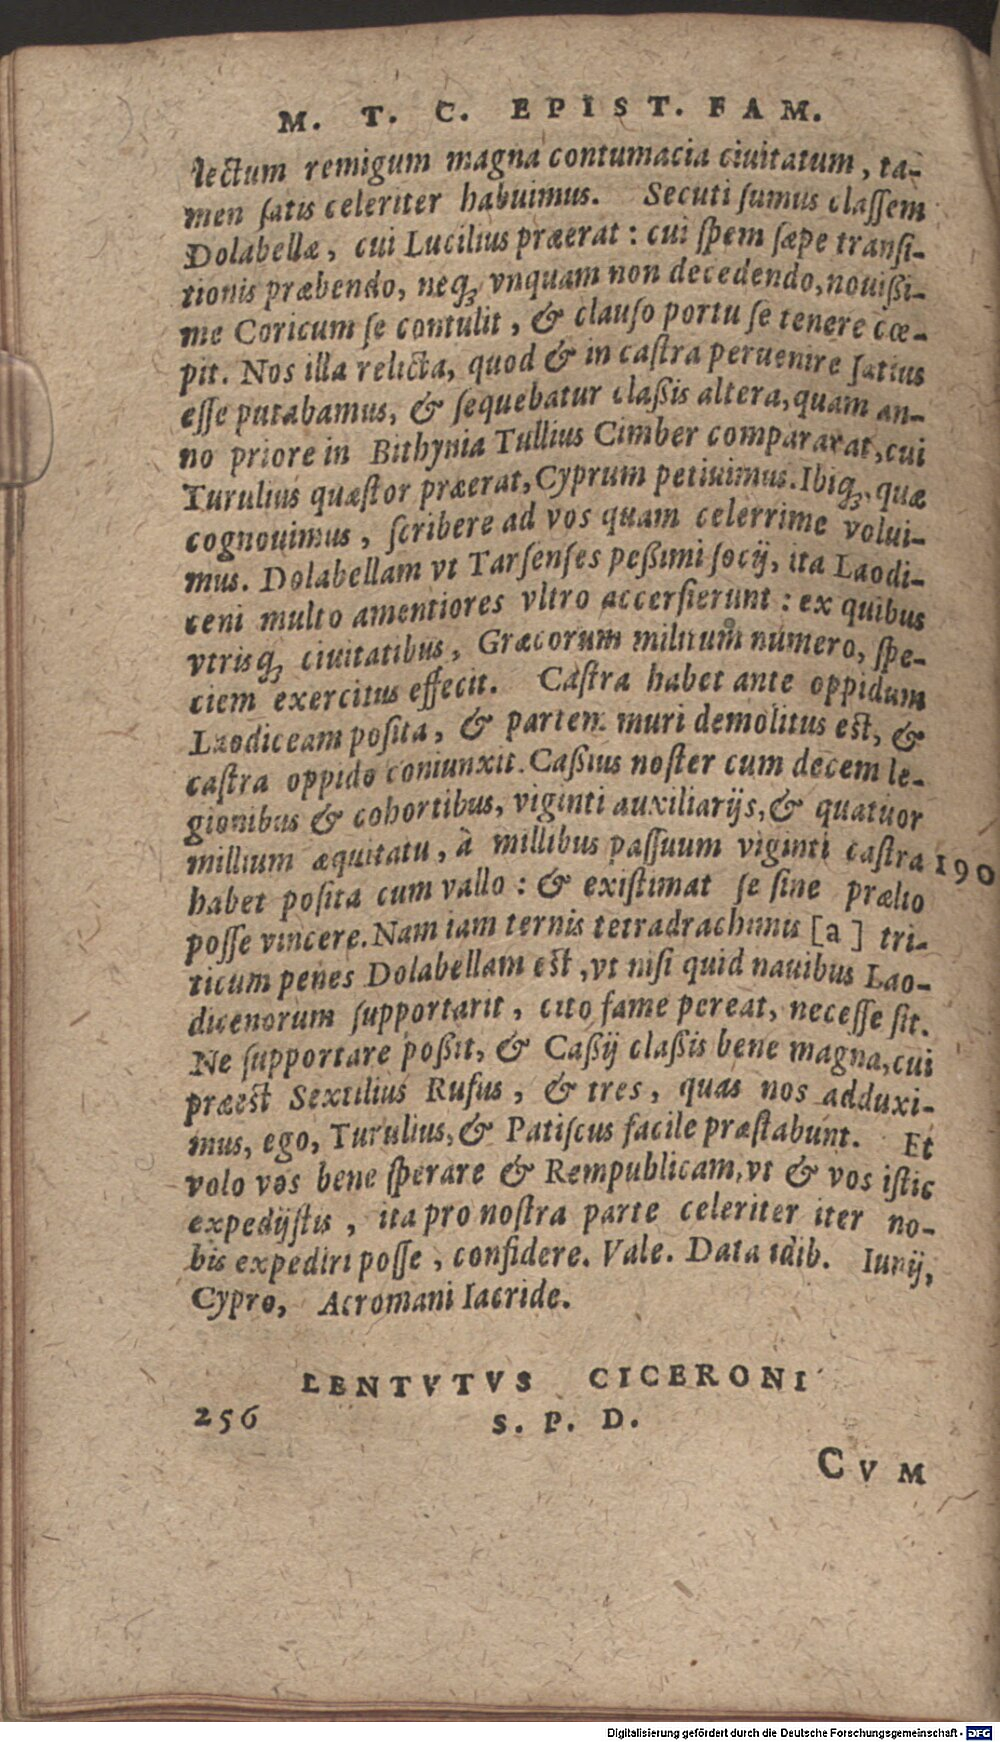 M. T. C. EPIST. FAM.
lectum remigum magna contumacia ciuitatum, ta-
men ſatis celeriter habuimus. Secuti ſumus claſſem
Dolabellæ, cui Lucilius præerat: cui ſpem ſæpe tranſi-
tionis præbendo, neqꝫ vnquam non decedendo, nouißi-
me Coricum ſe contulit, & clauſo portu ſe tenere cœ-
pit. Nos illa relicta, quod & in caſtra peruenire ſatius
eſſe putabamus, & ſequebatur claßis altera, quam an-
no priore in Bithynia Tullius Cimber compararat, cui
Turulius quæſtor præerat, Cyprum petiuimus. Ibiqꝫ, quæ
cognouimus, ſcribere ad vos quam celerrime volui-
mus. Dolabellam vt Tarſenſes peßimi ſocij, ita Laodi-
ceni multo amentiores vltro accerſierunt: ex quibus
vtrisqꝫ ciuitatibus, Græcorum militum numero, ſpe-
ciem exercitus effecit. Caſtra habet ante oppidum
Laodiceam poſita, & partem muri demolitus eſt, &
caſtra oppido coniunxit. Caßius noſter cum decem le-
gionibus & cohortibus, viginti auxiliarijs, & quatuor
millium æquitatu, à millibus paſſuum viginti caſtra 190
habet poſita cum vallo: & exiſtimat ſe ſine prælio
poſſe vincere. Nam iam ternis tetradrachmis [a] tri-
ticum penes Dolabellam eſt, vt niſi quid nauibus Lao-
dicenorum ſupportarit, cito fame pereat, neceſſe ſit.
Ne ſupportare poßit, & Caßij claßis bene magna, cui
præeſt Sextilius Rufus, & tres, quas nos adduxi-
mus, ego, Turulius, & Patiſcus facile præſtabunt. Et
volo vos bene ſperare & Rempublicam, vt & vos iſtic
expedijſtis, ita pro noſtra parte celeriter iter no-
bis expediri poſſe, confidere. Vale. Data idib. Iunij,
Cypro, Acromani Iacride.
LENTVTVS CICERONI
256 S. P. D.
CVM
Digitalisierung gefördert durch die Deutsche Forschungsgemeinschaft - DFG